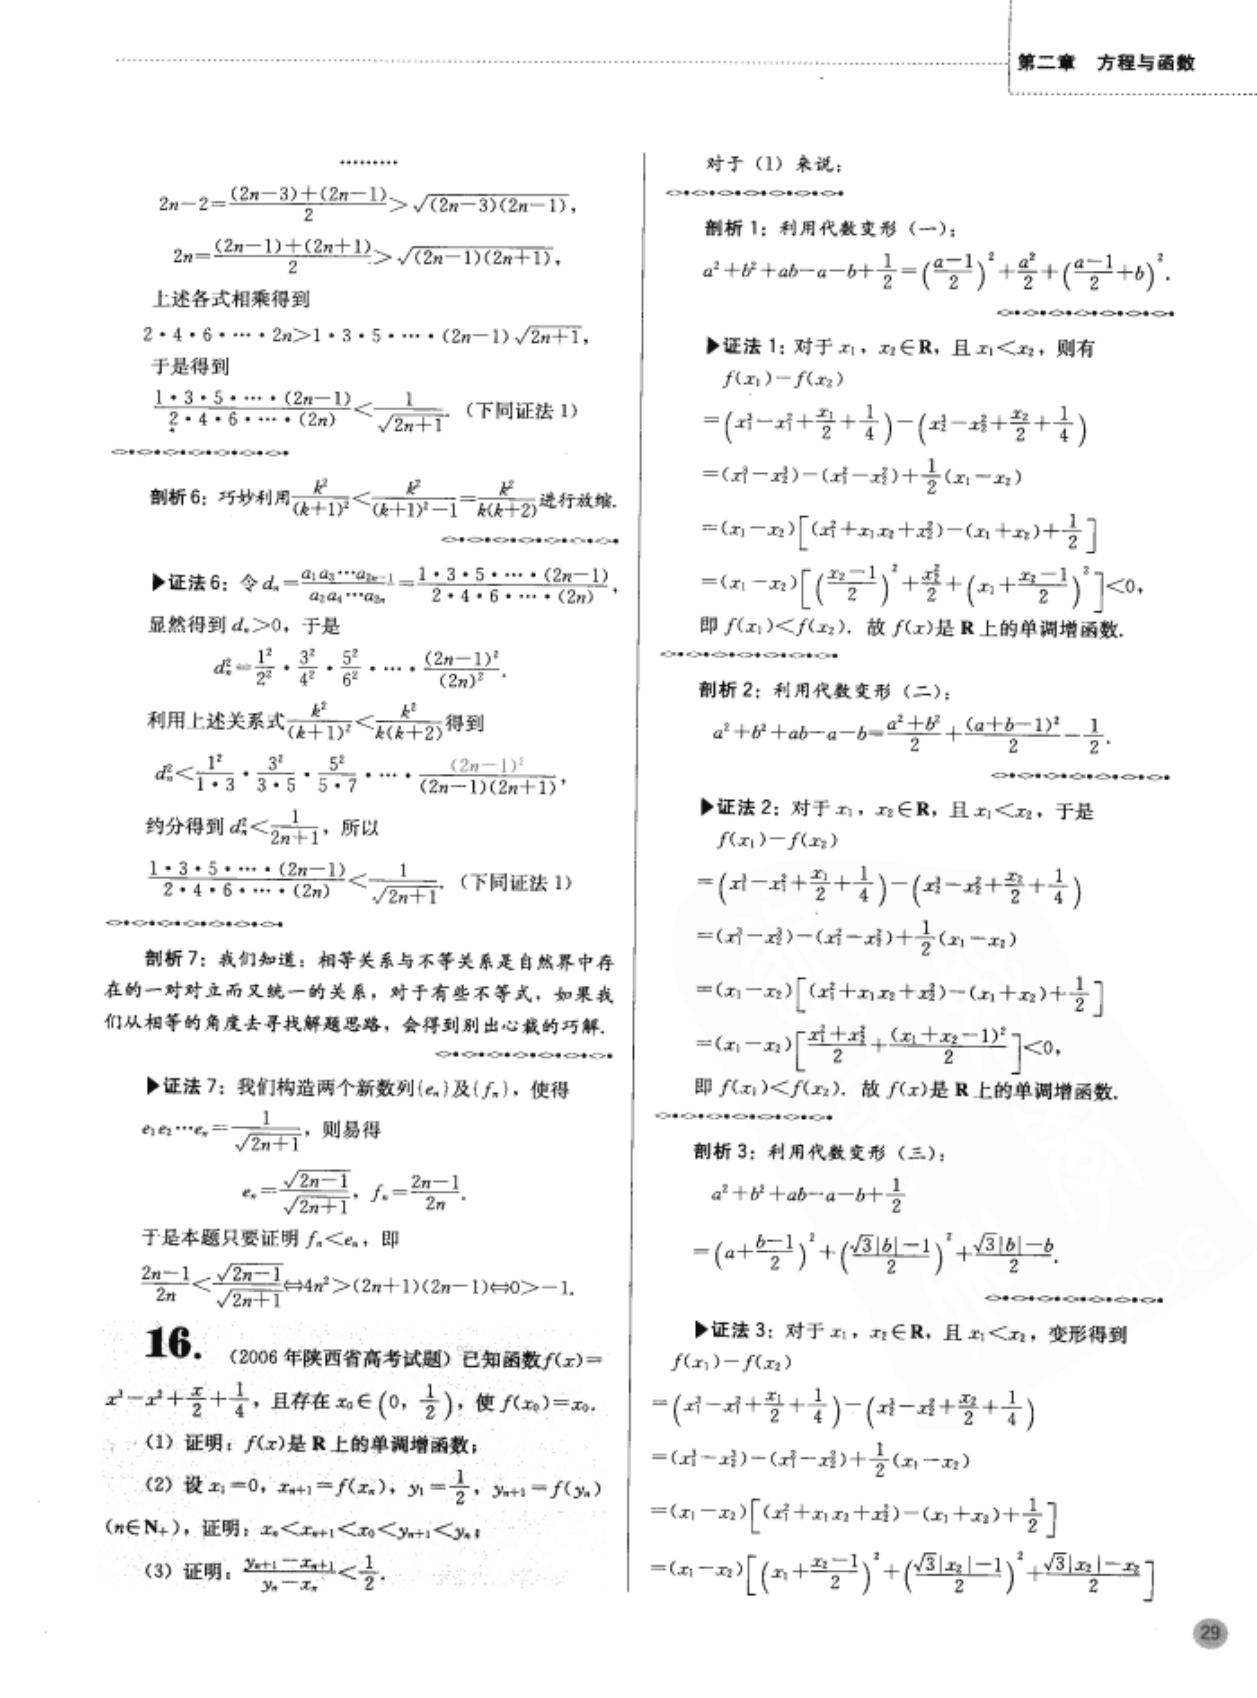 第二章 方程与函数
………
2n−2=\frac{(2n−3)+(2n−1)}{2}>\sqrt{(2n−3)(2n−1)},
2n=\frac{(2n−1)+(2n+1)}{2}>\sqrt{(2n−1)(2n+1)},
上述各式相乘得到
2·4·6·…·2n>1·3·5·…·(2n−1)\sqrt{2n+1},
于是得到
\frac{1·3·5·…·(2n−1)}{2·4·6·…·(2n)}<\frac{1}{\sqrt{2n+1}}.(下同证法1)
剖析6:巧妙利用\frac{k²}{(k+1)²}<\frac{k²}{(k+1)²−1}=\frac{k²}{k(k+2)}进行放缩.
▶证法6:令dₙ=\frac{a₁a₃…a₂ₙ₋₁}{a₂a₄…a₂ₙ}=\frac{1·3·5·…·(2n−1)}{2·4·6·…·(2n)},
显然得到dₙ>0,于是
dₙ²=\frac{1²}{2²}·\frac{3²}{4²}·\frac{5²}{6²}·…·\frac{(2n−1)²}{(2n)²}.
利用上述关系式\frac{k²}{(k+1)²}<\frac{k²}{k(k+2)}得到
dₙ²<\frac{1²}{1·3}·\frac{3²}{3·5}·\frac{5²}{5·7}·…·\frac{(2n−1)²}{(2n−1)(2n+1)},
约分得到dₙ²<\frac{1}{2n+1},所以
\frac{1·3·5·…·(2n−1)}{2·4·6·…·(2n)}<\frac{1}{\sqrt{2n+1}}.(下同证法1)
剖析7:我们知道:相等关系与不等关系是自然界中存
在的一对对立而又统一的关系,对于有些不等式,如果我
们从相等的角度去寻找解题思路,会得到别出心裁的巧解.
▶证法7:我们构造两个新数列{eₙ}及{fₙ},使得
e₁e₂…eₙ=\frac{1}{\sqrt{2n+1}},则易得
eₙ=\frac{\sqrt{2n−1}}{\sqrt{2n+1}},fₙ=\frac{2n−1}{2n}.
于是本题只要证明fₙ<eₙ,即
\frac{2n−1}{2n}<\frac{\sqrt{2n−1}}{\sqrt{2n+1}}⇔4n²>(2n+1)(2n−1)⇔0>−1.
16.(2006年陕西省高考试题)已知函数f(x)=
x³−x²+\frac{x}{2}+\frac{1}{4},且存在x₀∈(0,\frac{1}{2}),使f(x₀)=x₀.
(1)证明:f(x)是R上的单调增函数;
(2)设x₁=0,xₙ₊₁=f(xₙ),y₁=\frac{1}{2},yₙ₊₁=f(yₙ)
(n∈N₊),证明:xₙ<xₙ₊₁<x₀<yₙ₊₁<yₙ;
(3)证明:\frac{yₙ₊₁−xₙ₊₁}{yₙ−xₙ}<\frac{1}{2}.
对于(1)来说:
剖析1:利用代数变形(一):
a²+b²+ab−a−b+\frac{1}{2}=(\frac{a−1}{2})²+\frac{a²}{2}+(\frac{a−1}{2}+b)².
▶证法1:对于x₁,x₂∈R,且x₁<x₂,则有
f(x₁)−f(x₂)
=(x₁³−x₁²+\frac{x₁}{2}+\frac{1}{4})−(x₂³−x₂²+\frac{x₂}{2}+\frac{1}{4})
=(x₁³−x₂³)−(x₁²−x₂²)+\frac{1}{2}(x₁−x₂)
=(x₁−x₂)[(x₁²+x₁x₂+x₂²)−(x₁+x₂)+\frac{1}{2}]
=(x₁−x₂)[(\frac{x₂−1}{2})²+\frac{x₂²}{2}+(x₁+\frac{x₂−1}{2})²]<0,
即f(x₁)<f(x₂).故f(x)是R上的单调增函数.
剖析2:利用代数变形(二):
a²+b²+ab−a−b=\frac{a²+b²}{2}+\frac{(a+b−1)²}{2}−\frac{1}{2}.
▶证法2:对于x₁,x₂∈R,且x₁<x₂,于是
f(x₁)−f(x₂)
=(x₁³−x₁²+\frac{x₁}{2}+\frac{1}{4})−(x₂³−x₂²+\frac{x₂}{2}+\frac{1}{4})
=(x₁³−x₂³)−(x₁²−x₂²)+\frac{1}{2}(x₁−x₂)
=(x₁−x₂)[(x₁²+x₁x₂+x₂²)−(x₁+x₂)+\frac{1}{2}]
=(x₁−x₂)[\frac{x₁²+x₂²}{2}+\frac{(x₁+x₂−1)²}{2}]<0,
即f(x₁)<f(x₂).故f(x)是R上的单调增函数.
剖析3:利用代数变形(三):
a²+b²+ab−a−b+\frac{1}{2}
=(a+\frac{b−1}{2})²+(\frac{\sqrt{3}|b|−1}{2})²+\frac{\sqrt{3}|b|−b}{2}.
▶证法3:对于x₁,x₂∈R,且x₁<x₂,变形得到
f(x₁)−f(x₂)
=(x₁³−x₁²+\frac{x₁}{2}+\frac{1}{4})−(x₂³−x₂²+\frac{x₂}{2}+\frac{1}{4})
=(x₁³−x₂³)−(x₁²−x₂²)+\frac{1}{2}(x₁−x₂)
=(x₁−x₂)[(x₁²+x₁x₂+x₂²)−(x₁+x₂)+\frac{1}{2}]
=(x₁−x₂)[(x₁+\frac{x₂−1}{2})²+(\frac{\sqrt{3}|x₂|−1}{2})²+\frac{\sqrt{3}|x₂|−x₂}{2}]
29